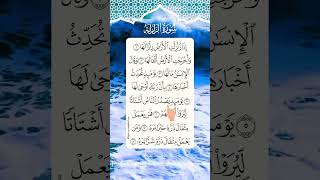 سُورَةُ الزَّلْزَلَةِ
إِذَا زُلْزِلَتِ الْأَرْضُ زِلْزَالَهَا ۝١
وَأَخْرَجَتِ الْأَرْضُ أَثْقَالَهَا ۝٢ وَقَالَ
الْإِنسَانُ مَا لَهَا ۝٣ يَوْمَئِذٍ تُحَدِّثُ
أَخْبَارَهَا ۝٤ بِأَنَّ رَبَّكَ أَوْحَىٰ لَهَا
۝٥ يَوْمَئِذٍ يَصْدُرُ النَّاسُ أَشْتَاتًا
لِّيُرَوْا أَعْمَالَهُمْ ۝٦ فَمَن يَعْمَلْ
مِثْقَالَ ذَرَّةٍ خَيْرًا يَرَهُ ۝٧ وَمَن
يَعْمَلْ مِثْقَالَ ذَرَّةٍ شَرًّا يَرَهُ ۝٨